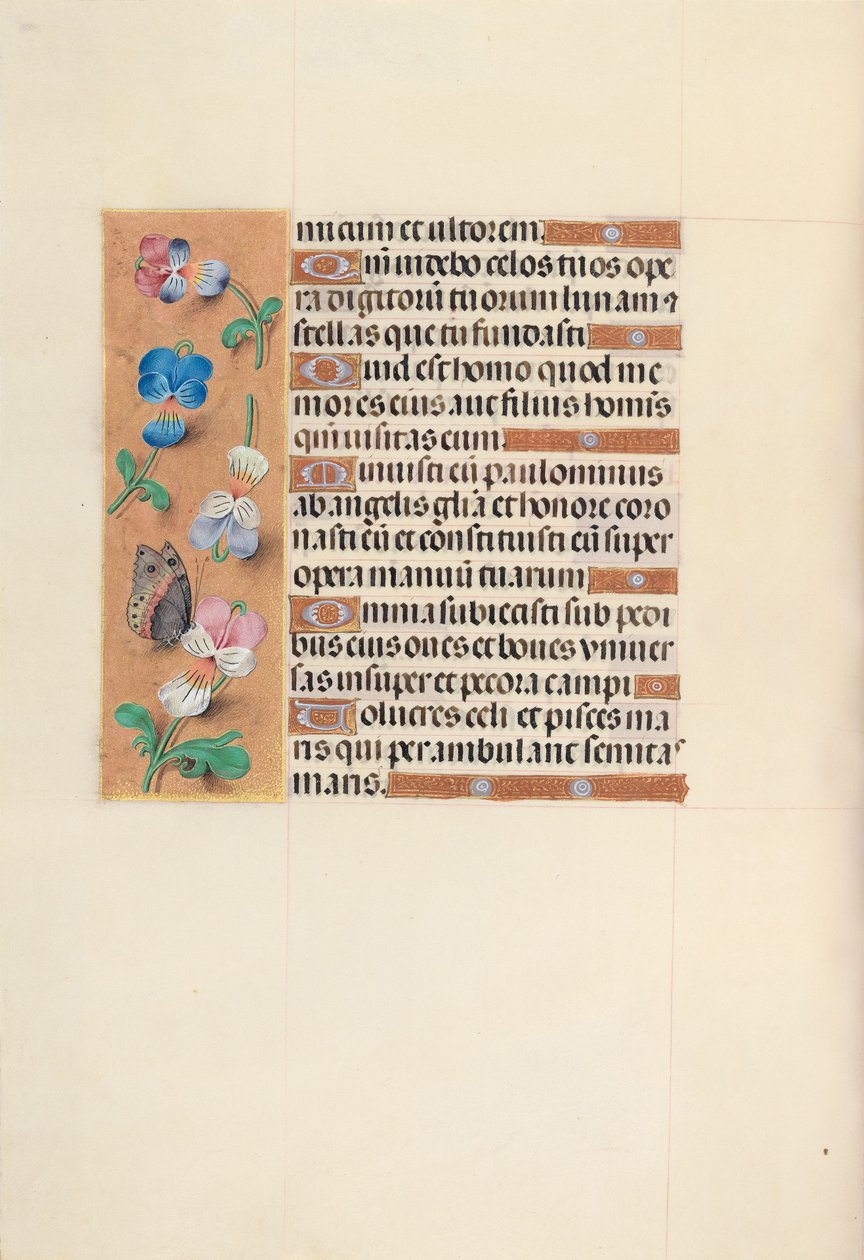 micum et ultorem.
Qm̄ uidebo celos tuos ope
ra digitorū tuorum lunam ⁊
stellas que tu fundasti
Quid est homo quod me
mor es eius aut filius homīs
qm̄ uisitas eum.
Minuisti eū paulominus
ab angelis gl̄ia et honore coro
nasti eū et cōnstituisti eū super
opera manuū tuarum
Omnia subiecisti sub pedi
bus eius oues et boues vniuer
sas insuper et pecora campi
Uolucres celi et pisces ma
ris qui perambulant semitas
maris.